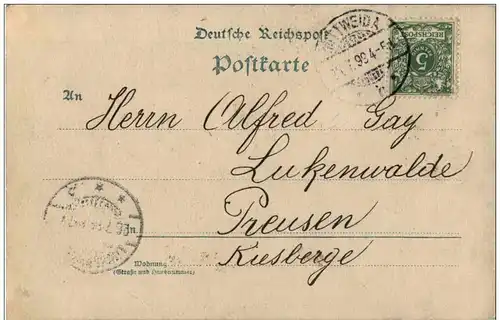 Deutsche Reichspost
Postkarte
An
Herrn Alfred Gay
Lukenwalde
in
Preusen
Kiesberge
Wohnung
(Straße und Hausnummer)
REICHSPOST
5